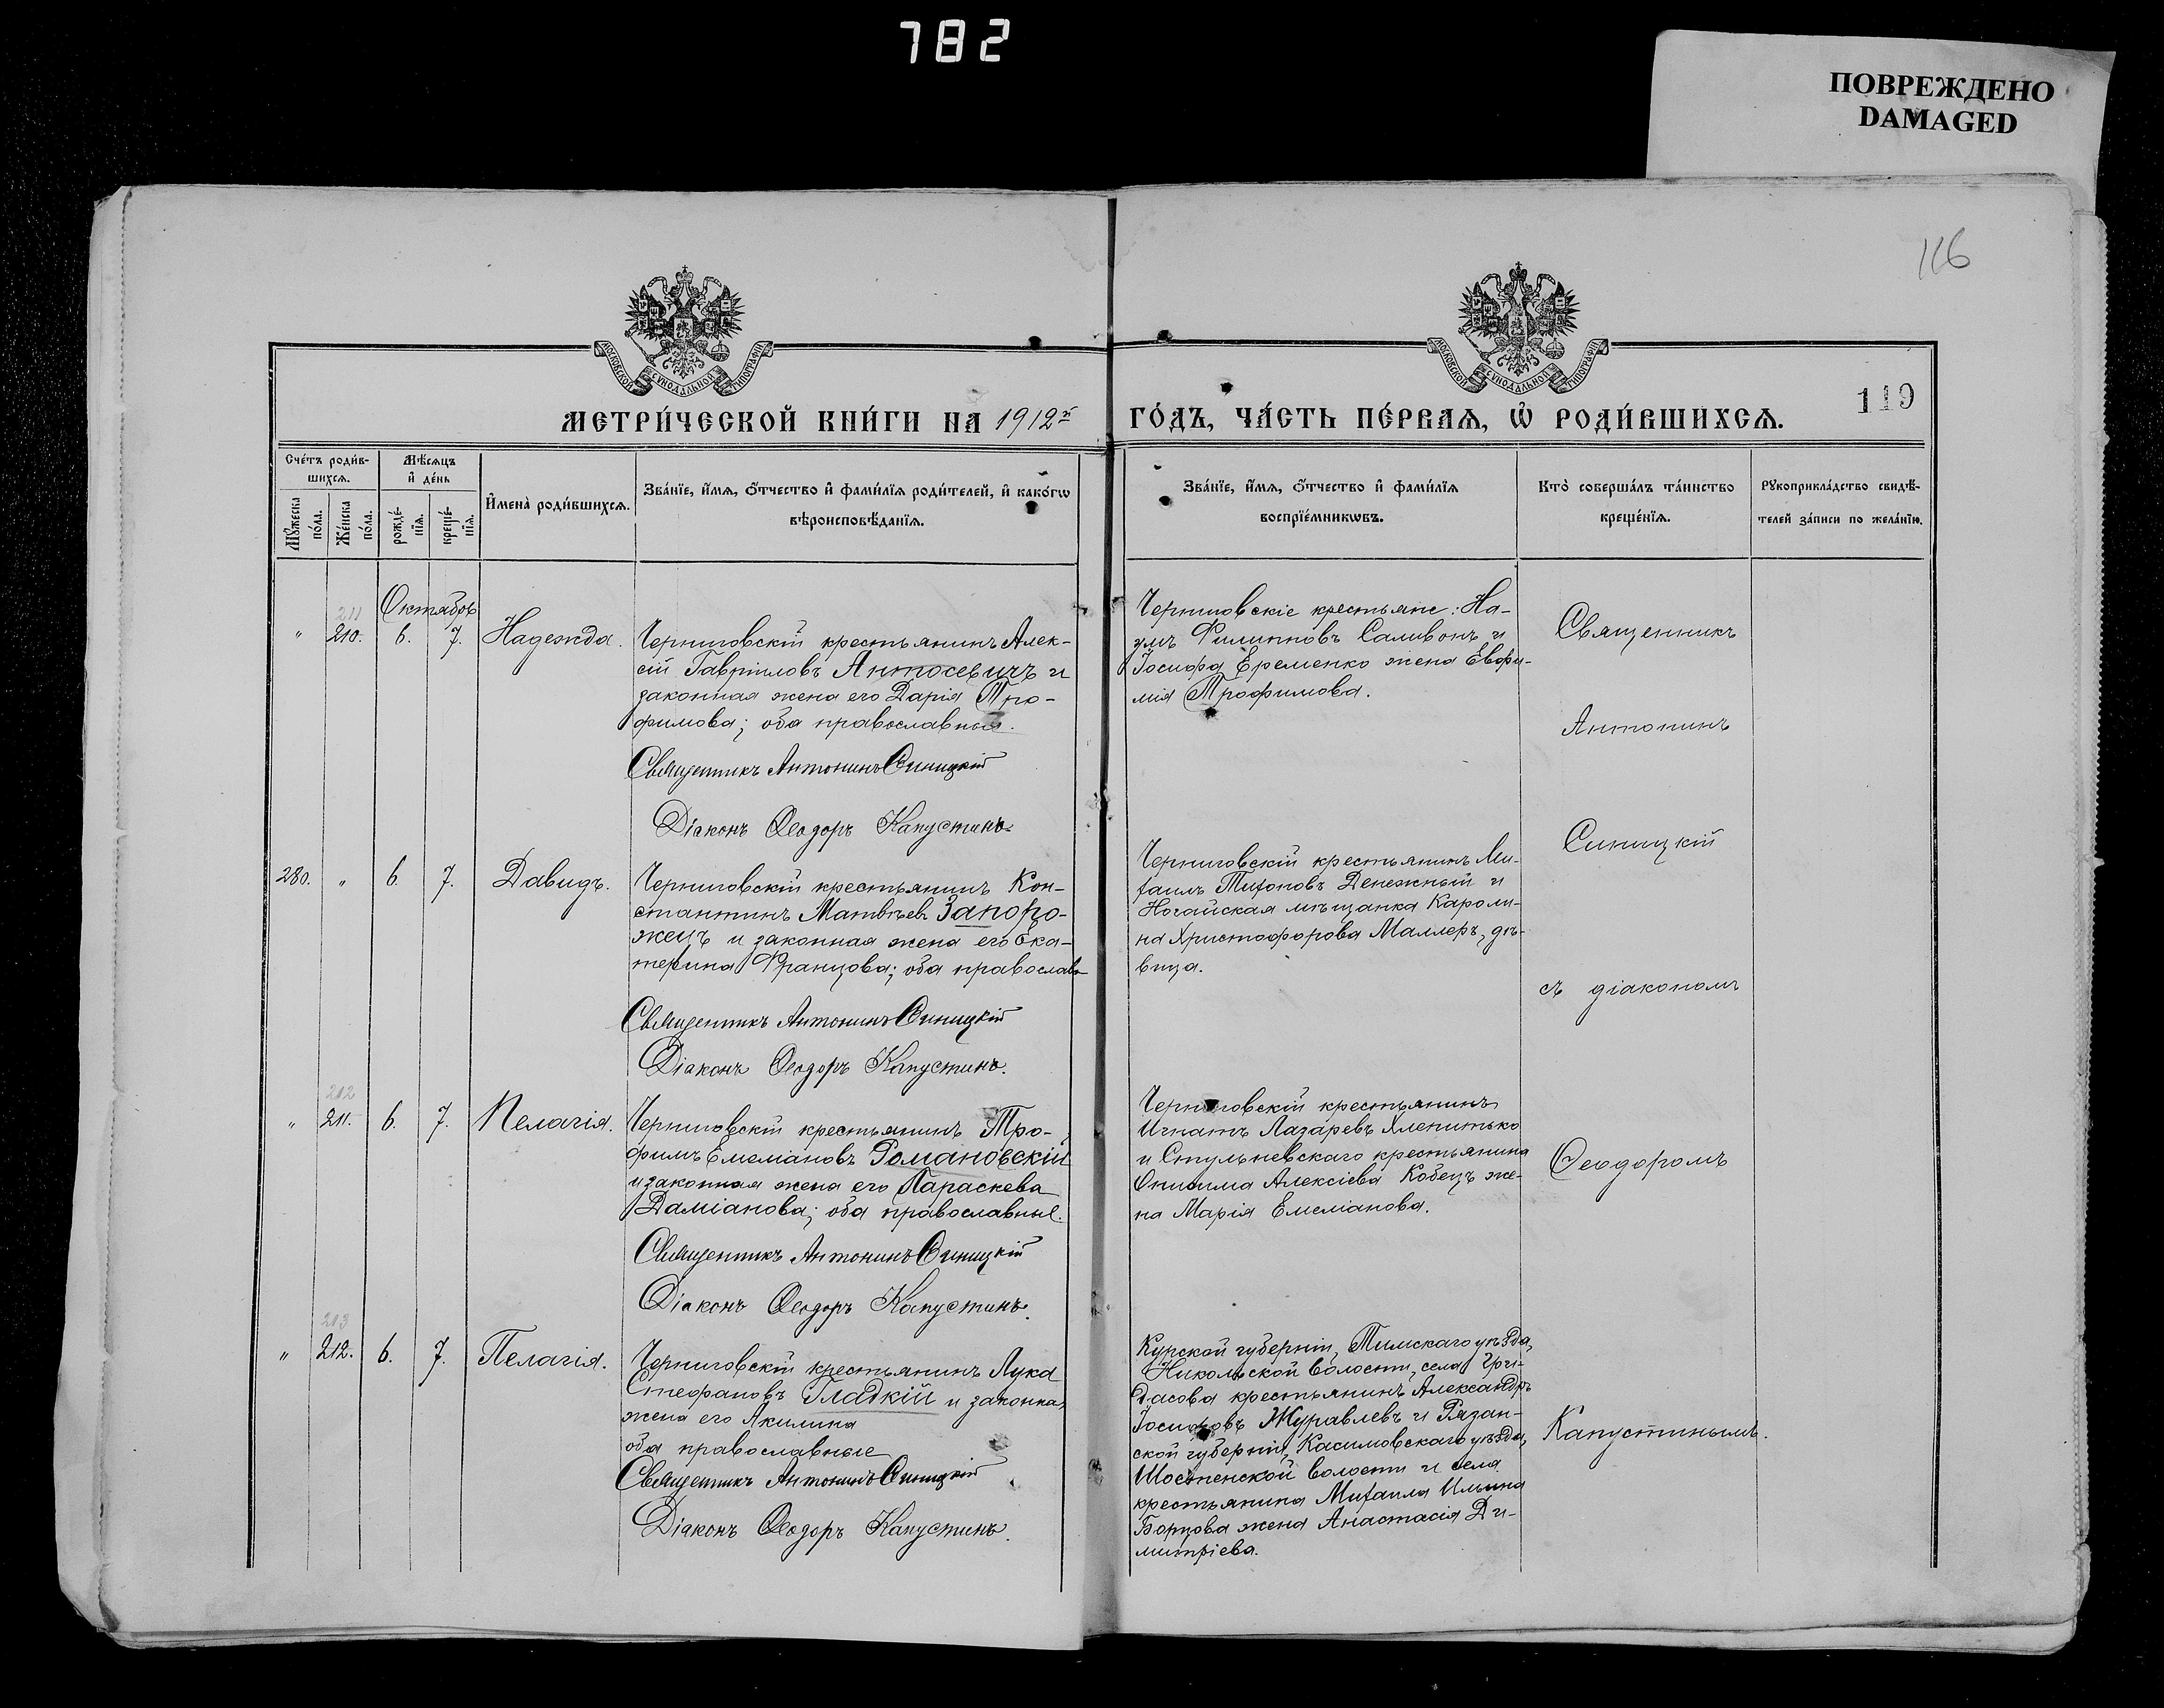 782
ПОВРЕЖДЕНО
DAMAGED
116
119
МОСКОВСКОЙ СѴНОДАЛЬНОЙ ТИПОГРАФІИ
МОСКОВСКОЙ СѴНОДАЛЬНОЙ ТИПОГРАФІИ
МЕТРИ́ЧЕСКОЙ КНИ́ГИ НА 1912й ГО́ДЪ, ЧА́СТЬ ПЕ́РВАѦ, Ѽ РОДИ́ВШИХСѦ.
Сче́тъ роди́в-
шихсѧ.
Мѣ́сѧцъ
и҆ де́нь
Мꙋ́жеска
по́ла.
Же́нска
по́ла.
рожде́-
нїѧ.
креще́-
нїѧ.
И҆мена̀ роди́вшихсѧ.
Зва́нїе, и҆́мѧ, ѻ҆́тчество и҆ фами́лїѧ роди́телей, и҆ како́гѡ
вѣроисповѣ́данїѧ.
Зва́нїе, и҆́мѧ, ѻ҆́тчество и҆ фами́лїѧ
воспрїе́мникѡвъ.
Кто̀ соверша́лъ та́инство
креще́нїѧ.
Рꙋкоприкла́дство свидѣ́-
телей за́писи по жела́нїю.
Октябрь
211
" 210. 6. 7. Надежда.
Черниговскій крестьянинъ Алек-
сій Гавріиловъ Антосевичъ и
законная жена его Дарія Тро-
фимова; оба православные.
Священникъ Антонинъ Синицкій
Діаконъ Ѳеодоръ Капустинъ.
Черниговскіе крестьяне: На-
умъ Филипповъ Саливонъ и
Іосифа Еременко жена Евфи-
мія Трофимова.
Священникъ
Антонинъ
Синицкій
съ діакономъ
Ѳеодоромъ
Капустинымъ.
280. " 6. 7. Давидъ.
Черниговскій крестьянинъ Кон-
стантинъ Матвѣевъ Запоро-
жецъ и законная жена его Ека-
терина Францова; оба православ
Священникъ Антонинъ Синицкій
Діаконъ Ѳеодоръ Капустинъ.
Черниговскій крестьянинъ Ми-
хаилъ Тихоновъ Денежный и
Ногайская мѣщанка Кароли-
на Христофорова Маллеръ, дѣ-
вица.
212
" 211. 6. 7. Пелагія.
Черниговскій крестьянинъ Тро-
фимъ Емеліановъ Романовскій
и законная жена его Параскева
Даміанова; оба православные.
Священникъ Антонинъ Синицкій
Діаконъ Ѳеодоръ Капустинъ.
Черниговскій крестьянинъ
Игнатъ Лазаревъ Хленитько
и Стульневскаго крестьянина
Онисима Алексіева Кобецъ же-
на Марія Емеліанова.
213
" 212. 6. 7. Пелагія.
Черниговскій крестьянинъ Лука
Стефановъ Гладкій и законная
жена его Акилина
оба православные
Священникъ Антонинъ Синицкій
Діаконъ Ѳеодоръ Капустинъ.
Курской губерніи, Тимскаго уѣзда,
Никольской волости, села
крестьянинъ Александръ
Іосифовъ Журавлевъ и Рязан-
ской губерніи, Касимовскаго уѣзда,
волости и села
крестьянина Михаила Ильина
Борцова жена Анастасія Ди-
митріева.